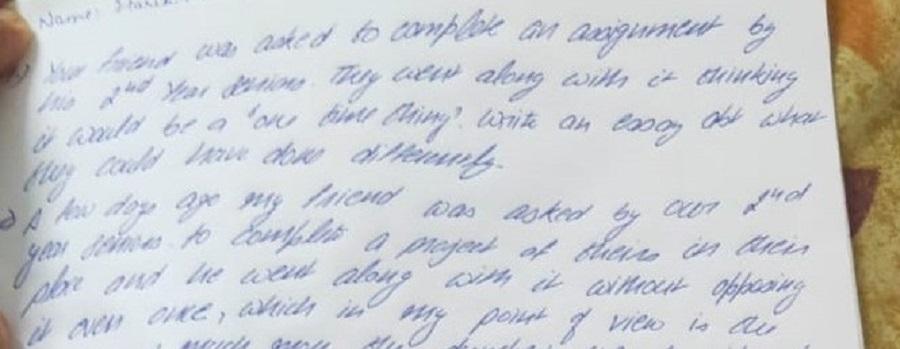 Name:
Your friend was asked to complete an assignment by
his 2nd Year seniors. They went along with it thinking
it would be a "one time thing". Write an essay abt what
they could have done differently.
A few days ago my friend was asked by our 2nd
year seniors to complete a project of theirs in their
place and he went along with it without opposing
it even once, which in my point of view is the
much more the